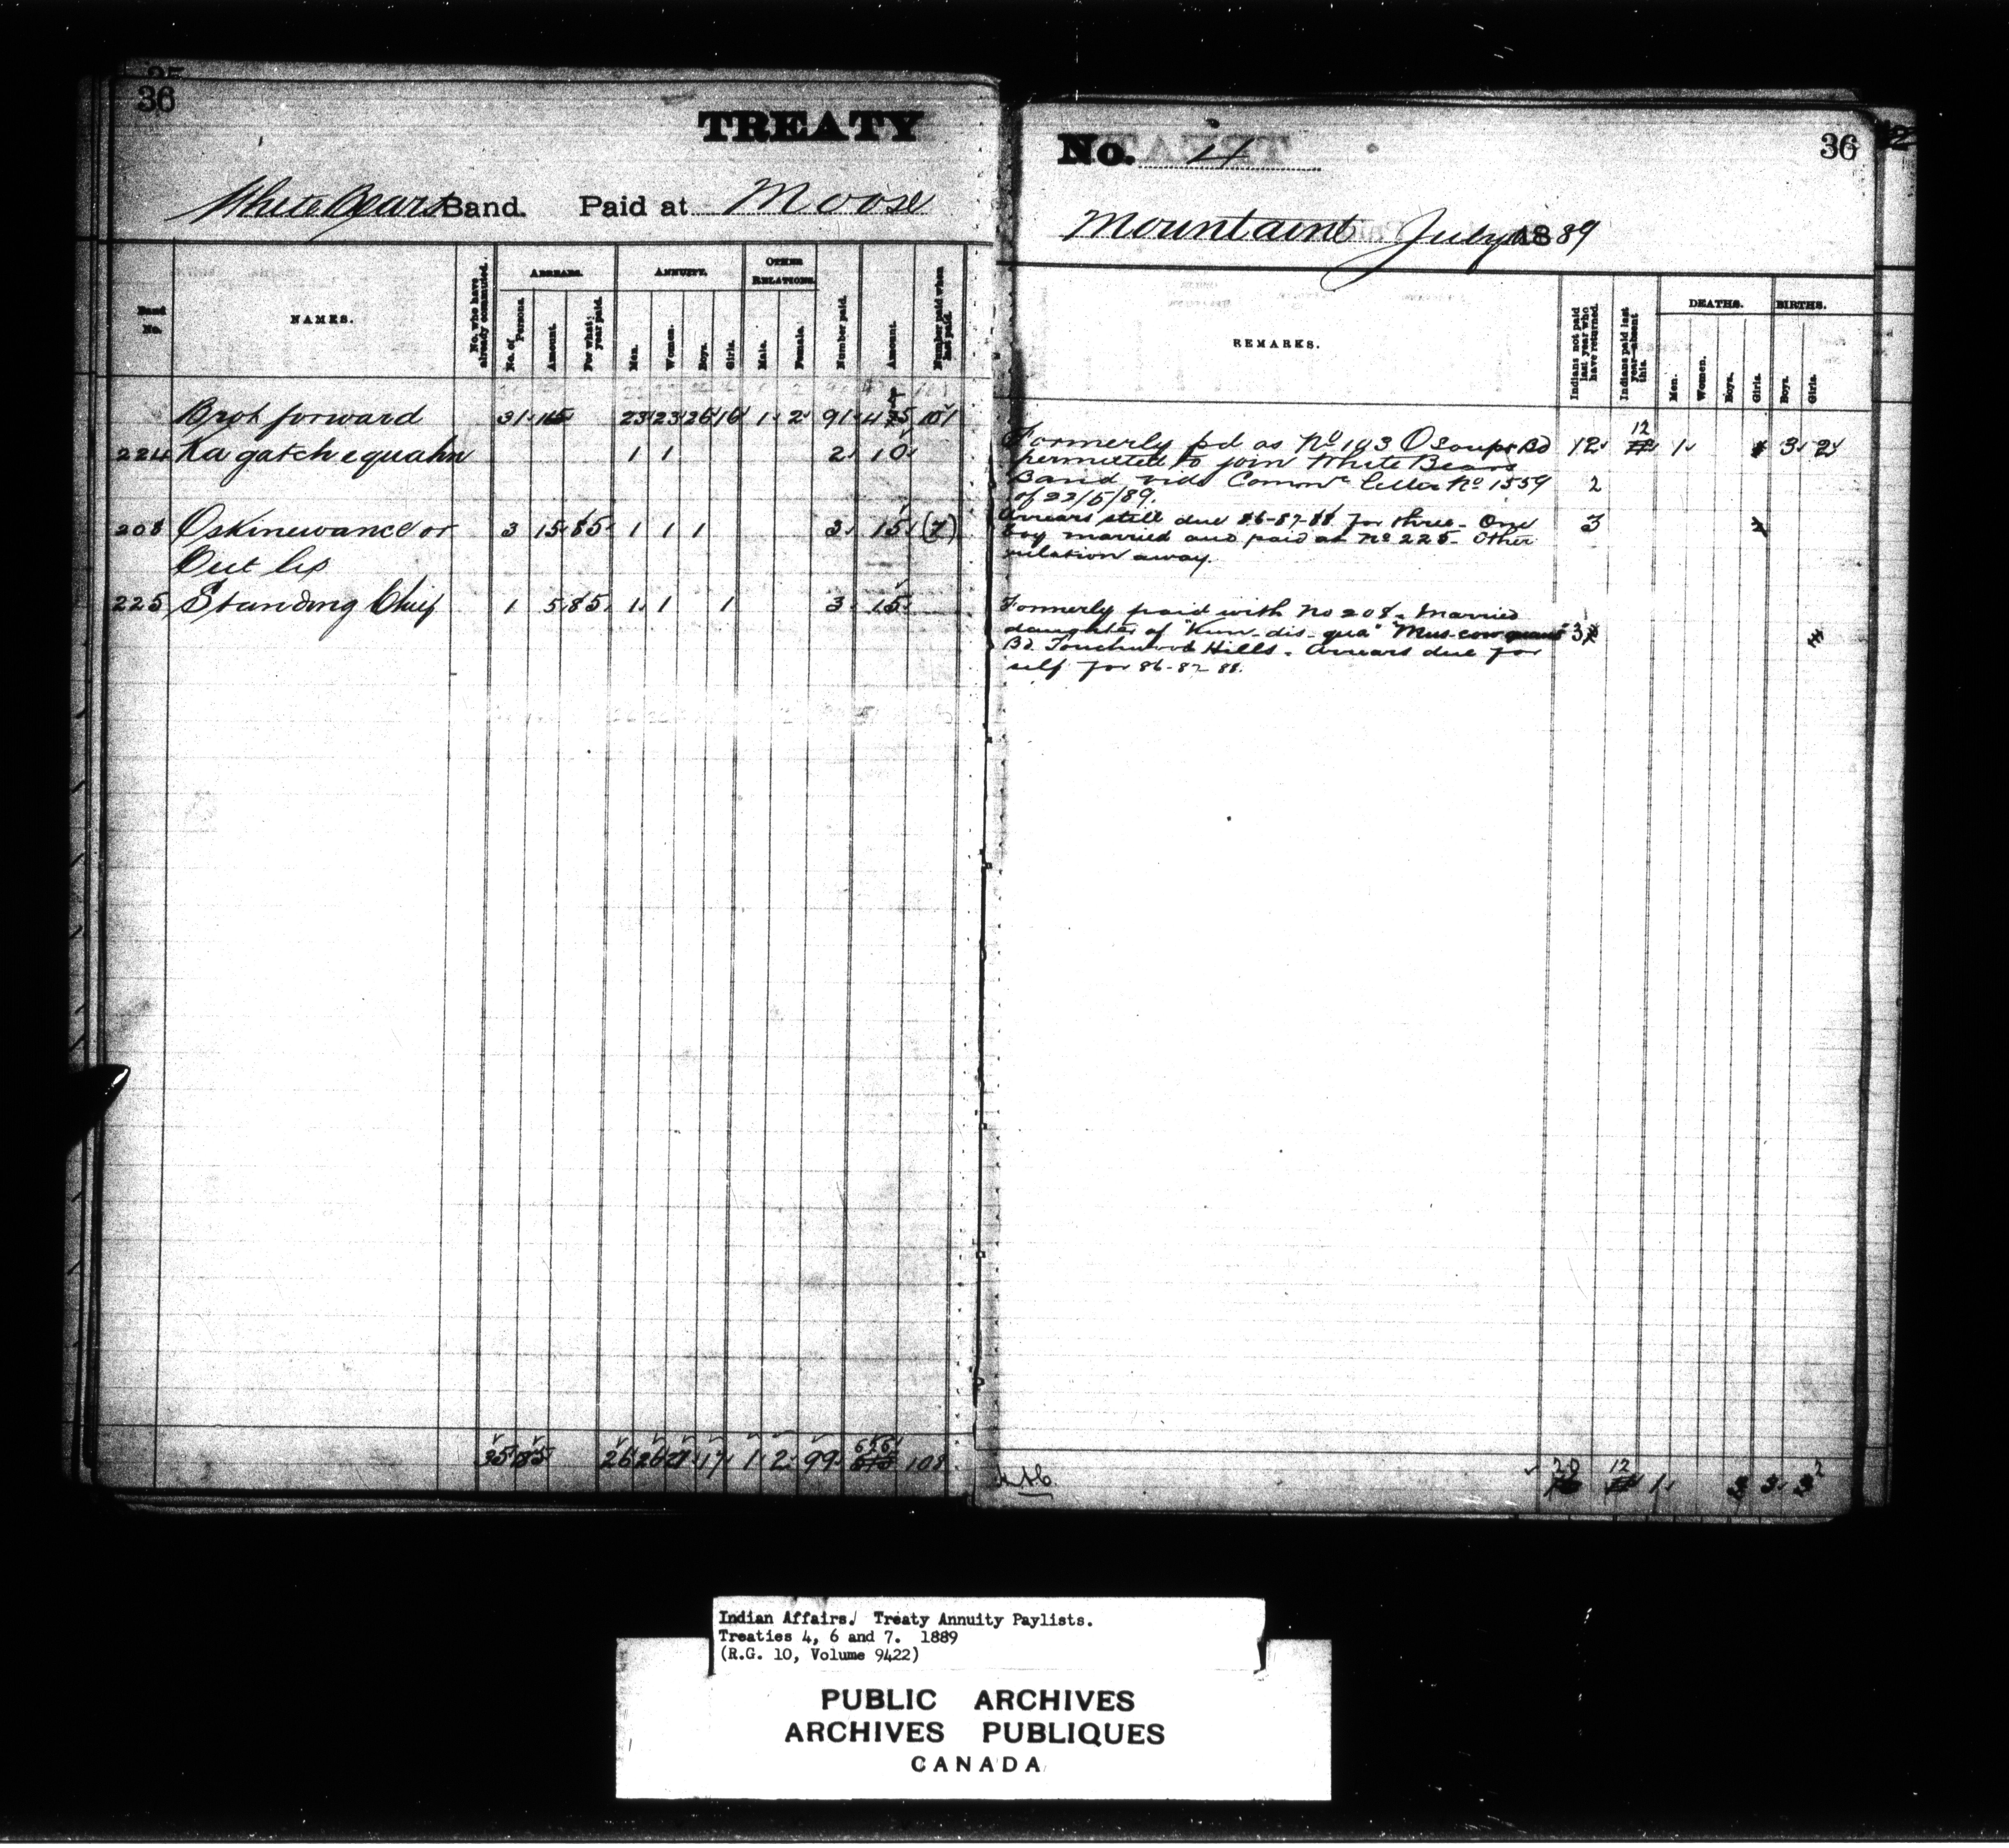 36
TREATY
White Bears Band. Paid at Moose
Band No.
NAMES.
No. who have already commuted.
ARREARS.
No. of Persons.
Amount.
For what year paid.
ANNUITY.
Men.
Women.
Boys.
Girls.
OTHER RELATIONS.
Male.
Female.
Number paid.
Amount.
Number paid when last paid.
Brot forward 31 23 23 26 16 1 2 91 101
224 Ka gatch equahn 1 1 2 10
208 Oskinewance or 3 15 85 1 1 1 3 15 (7)
Cut lip
225 Standing Chief 1 5 85 1 1 1 3 15
35 185 26 26 27 17 1 2 99 108
No. 4
36
Mountain July 1889
REMARKS.
Indians not paid last year who have returned.
Indians paid last year—absent this.
DEATHS.
Men.
Women.
Boys.
Girls.
BIRTHS.
Boys.
Girls.
Formerly pd as No 193 Osoups Bd 12 12 1 3 2
permitted to join White Bears
Band vide Commrs letter No 1559 2
of 22/5/89.
Arrears still due 86-87-88 for three - One 3
boy married and paid as No 225 - Other
relation away.
Formerly paid with No 208. Married
daughter of "Kun-dis-qua" 3
Bd Touchwood Hills. Arrears due for
self for 86-87-88.
20 12 1 3 3 2
Indian Affairs. Treaty Annuity Paylists.
Treaties 4, 6 and 7. 1889
(R.G. 10, Volume 9422)
PUBLIC ARCHIVES
ARCHIVES PUBLIQUES
CANADA